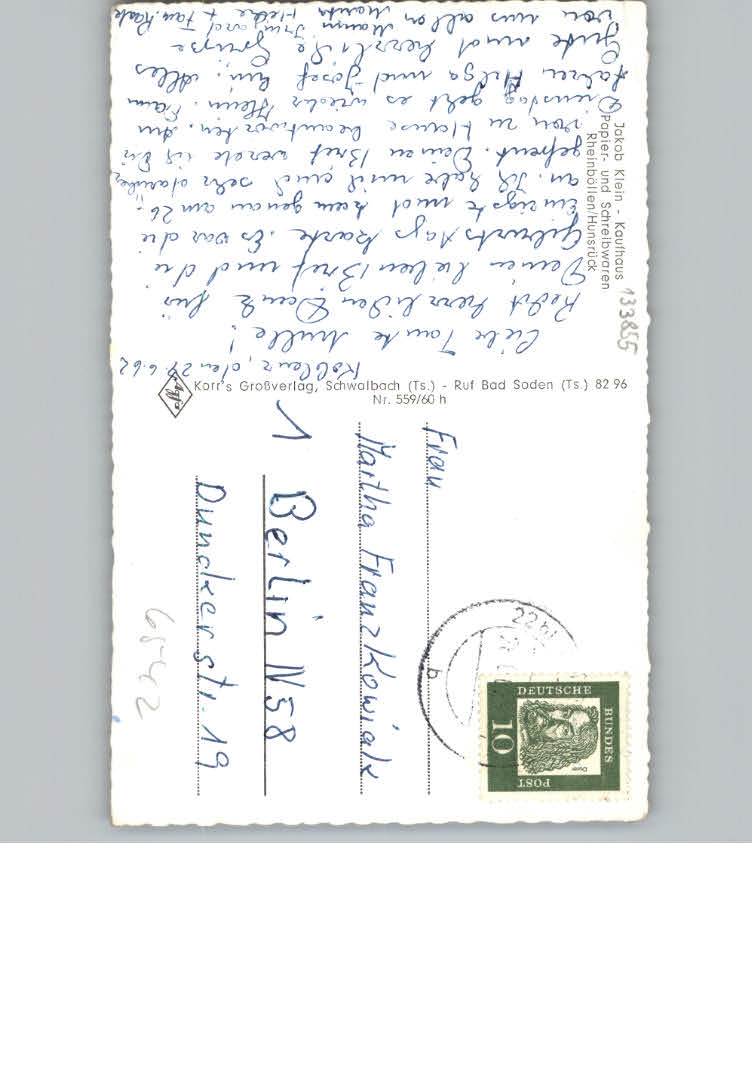 Koblenz, den 27.6.62
Liebe Tante Mulle!
Recht herzlichen Dank für
Deinen lieben Brief und die
Geburtstagskarte. Es war die
Einzigste und kam genau am 26.
an. Ich habe mich sehr darüber
gefreut. Deinen Brief werde ich Dir
von zu Hause beantworten. Am
Dienstag geht es wieder Heim. Dann
fahren Helga und Josef hin. Alles
Gute und herzliche Grüsse
von uns allen
Jakob Klein - Kaufhaus
Papier- und Schreibwaren
Rheinböllen/Hunsrück
133855
Korr's Großverlag, Schwalbach (Ts.) - Ruf Bad Soden (Ts.) 82 96
Nr. 559/60 h
Frau
Martha Franzkowiak
1 Berlin N 58
Dunckerstr. 19
DEUTSCHE
BUNDES
POST
10
Dürer
22b
b
6542